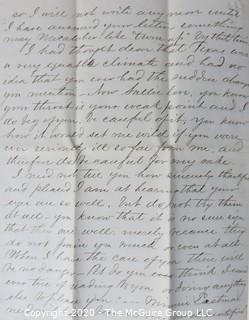 so I will not write any more until
I have answered your letter. Something
may Micawber like "turn up" by that time
I had thought dear that Texas was
a very equable climate and had no
idea that you ever had the sudden changes
you mention. Now Nellie love, you know
your throat is your weak point and I
do beg of you be careful of it, you know
how it would set me wild if you were
ever seriously ill so far from me, and
therefore do be careful for my sake.
I need not tell you how sincerely thankful
and pleased I am at hearing that your
eyes are so well. But do not try them
at all – you know that it is no sure sign
that they are well merely because they
do not pain you much or even at all
When I have the care of you there will
be no danger. As do you ever think I can
ever tire of reading to you or doing anything
else to please you? — Minnie Eastman
beautiful
Copyright 2000 - 2020 - The McGuire Group LLC